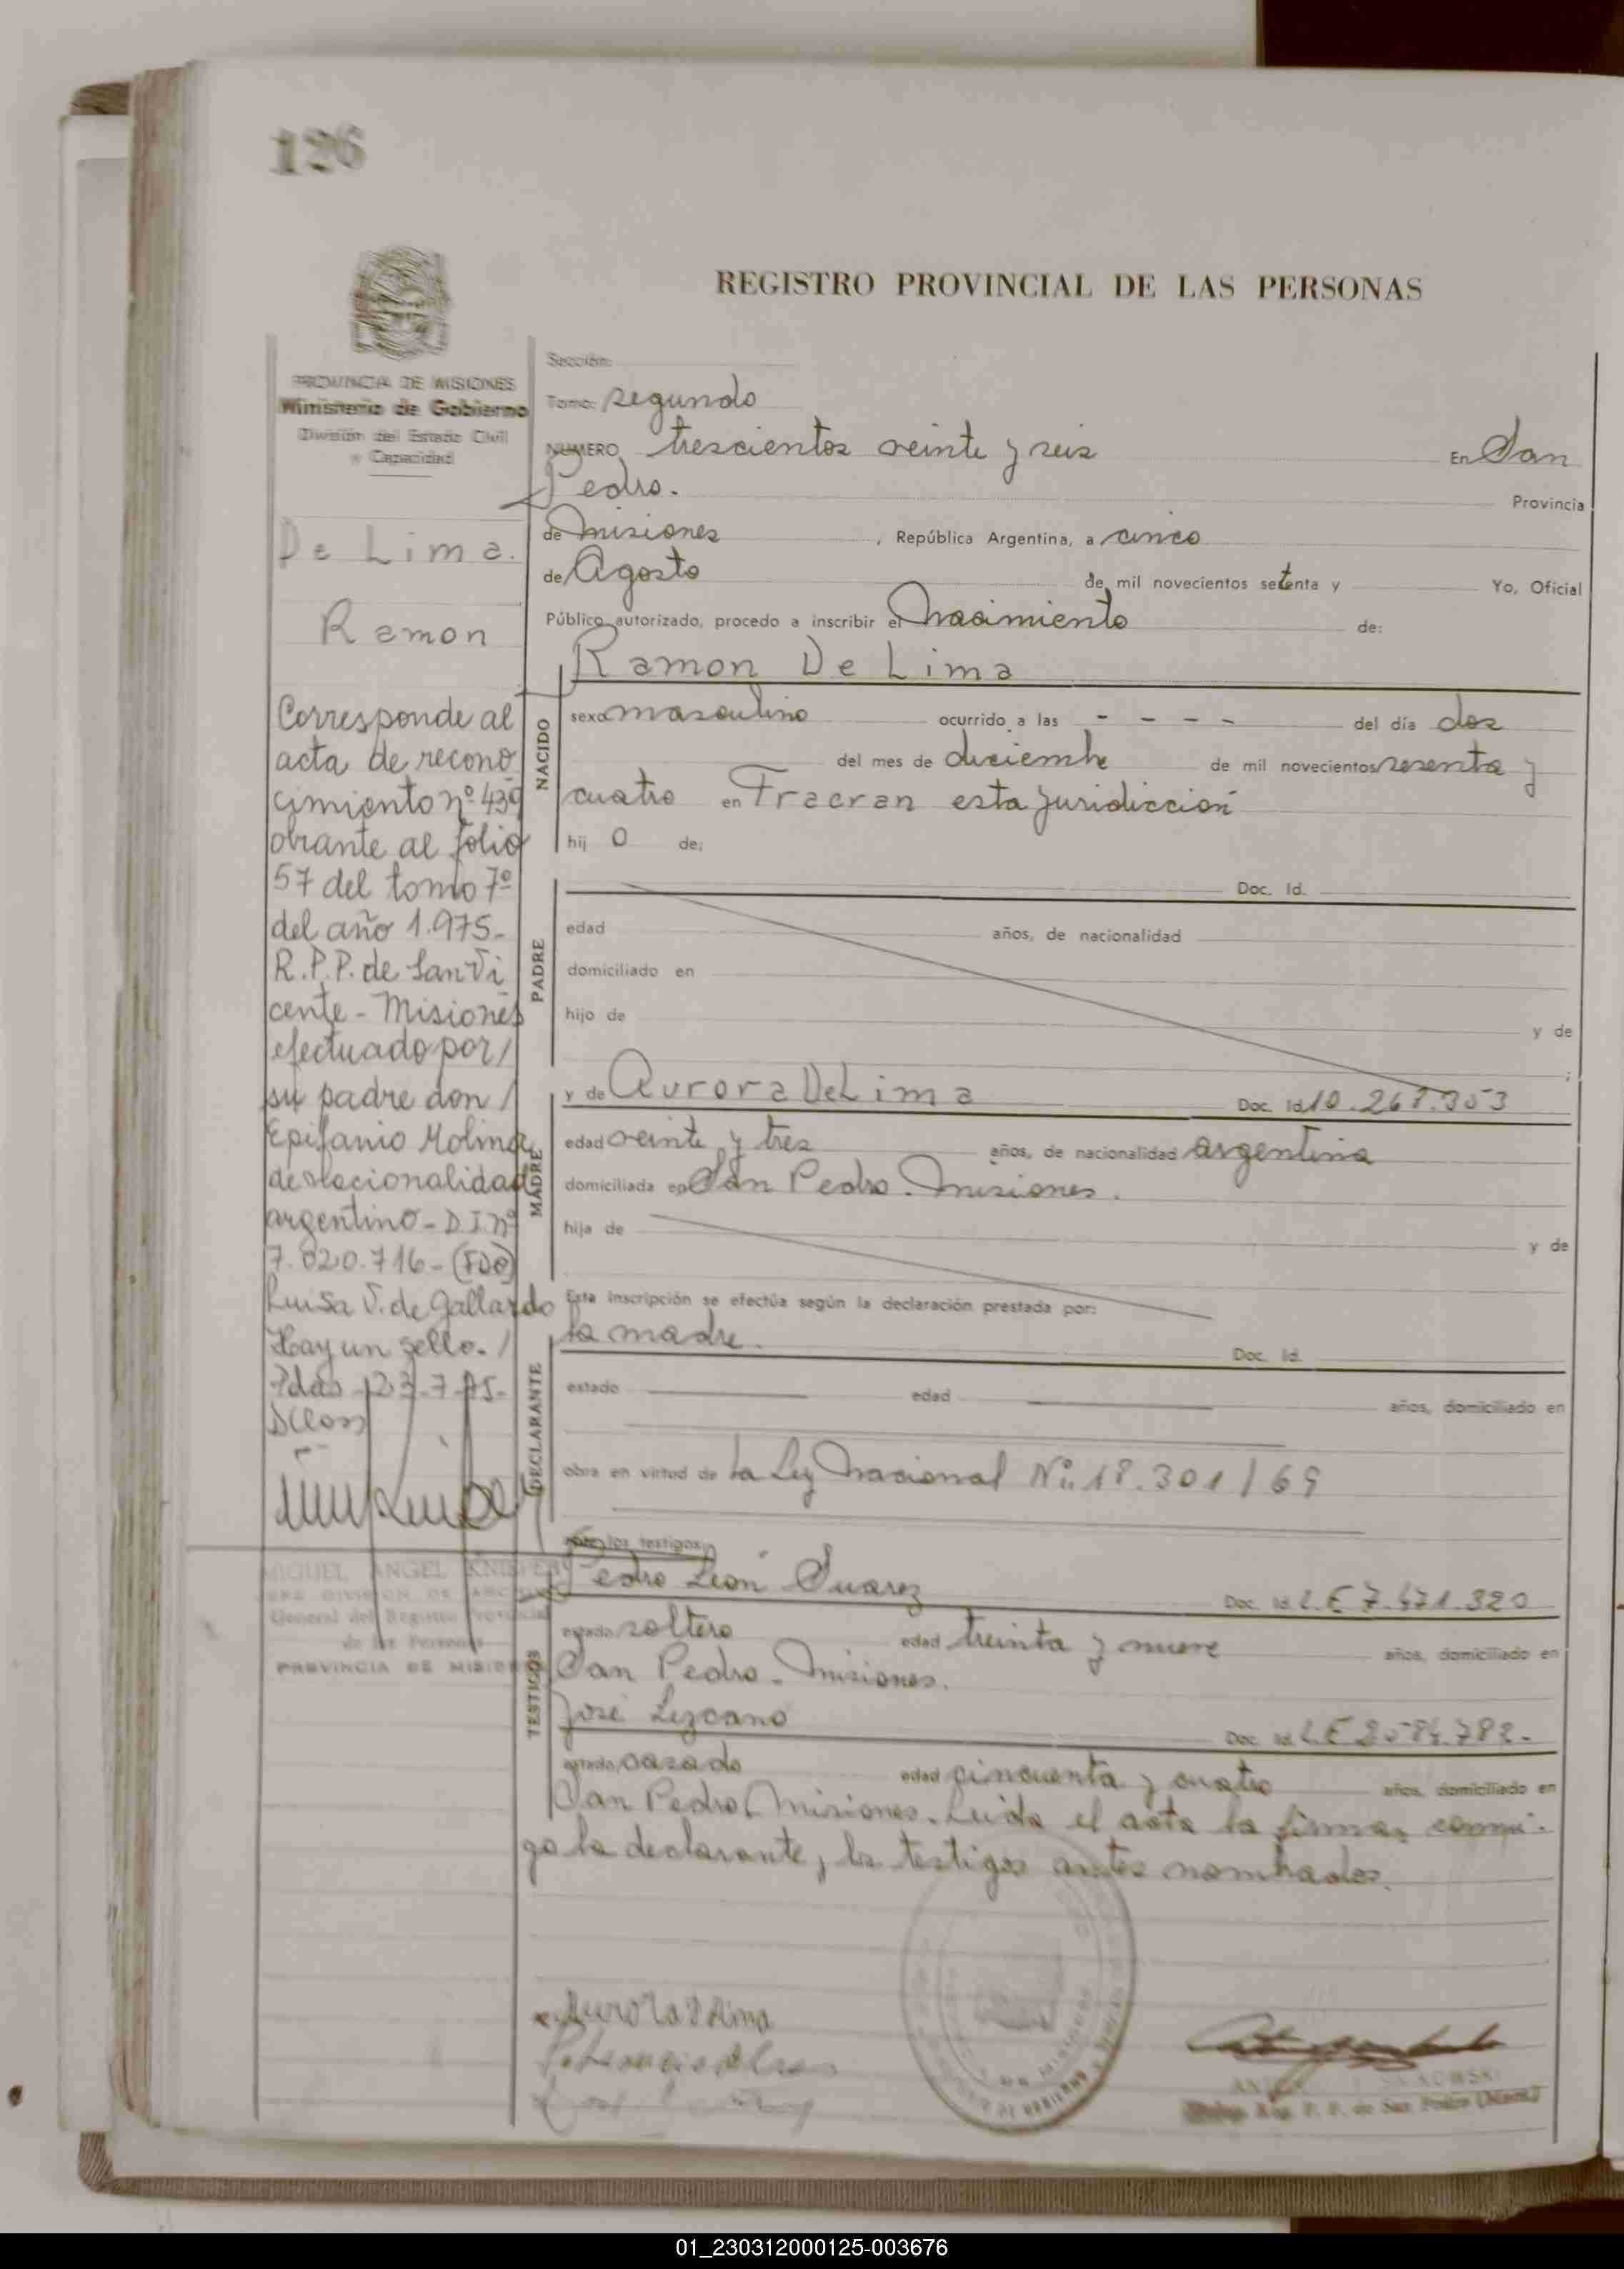 126
REGISTRO PROVINCIAL DE LAS PERSONAS
PROVINCIA DE MISIONES
Ministerio de Gobierno
División del Estado Civil
y Capacidad
De Lima.
Ramon
Corresponde al
acta de recono
cimiento nº 439
obrante al folio
57 del tomo 7º
del año 1.975-
R.P.P. de San Vi
cente - Misiones
efectuado por /
su padre don /
Epifanio Molina
de nacionalidad
argentino - D.I. nº
7.820.716 - (FDO)
Luisa V. de Gallardo
Hay un sello. /
Pdas 23-7-75-
MIGUEL ANGEL
General del Registro Provincial
de las Personas
PROVINCIA DE MISIONES
Sección:
Tomo: segundo
NUMERO trescientos veinte y seis En San
Pedro. Provincia
de Misiones , República Argentina, a cinco
de Agosto de mil novecientos setenta y Yo, Oficial
Público autorizado, procedo a inscribir el Nacimiento de:
Ramon De Lima
NACIDO
sexo masculino ocurrido a las - - - - del día dos
del mes de diciembre de mil novecientos sesenta y
cuatro en Fracran esta juridiccion
hij o de:
PADRE
Doc. Id.
edad años, de nacionalidad
domiciliado en
hijo de y de
;
MADRE
y de Aurora De Lima Doc. Id. 10.268.353
edad veinte y tres años, de nacionalidad argentina
domiciliada en San Pedro. Misiones.
hija de y de
Esta inscripción se efectúa según la declaración prestada por:
DECLARANTE
la madre. Doc. Id.
estado edad años, domiciliado en
obra en virtud de La Ley Nacional Nº: 18.301/69
TESTIGOS
ante los testigos:
Pedro León Suarez Doc. Id. L.E 7.471.320
estado soltero edad treinta y nueve años, domiciliado en
San Pedro - Misiones.
José Lezcano Doc. Id. L.E 2584.782-
estado casado edad cincuenta y cuatro años, domiciliado en
San Pedro Misiones. Leida el acta la firman conmi-
go la declarante, los testigos antes nombrados.
Aurora D Lima
Reg. P. P. de San Pedro (Mnes.)
01_230312000125-003676